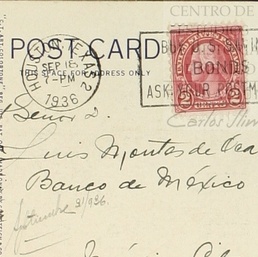 CENTRO DE
POST CARD
THIS SPACE FOR ADDRESS ONLY
HOUSTON, TEXAS 2
SEP 16
7-PM
1936
BUY U.S. SAVINGS
BONDS
ASK YOUR POSTM
Señor D.
Carlos
Luis Montes de Oca
Banco de México
Septiembre 21/936.